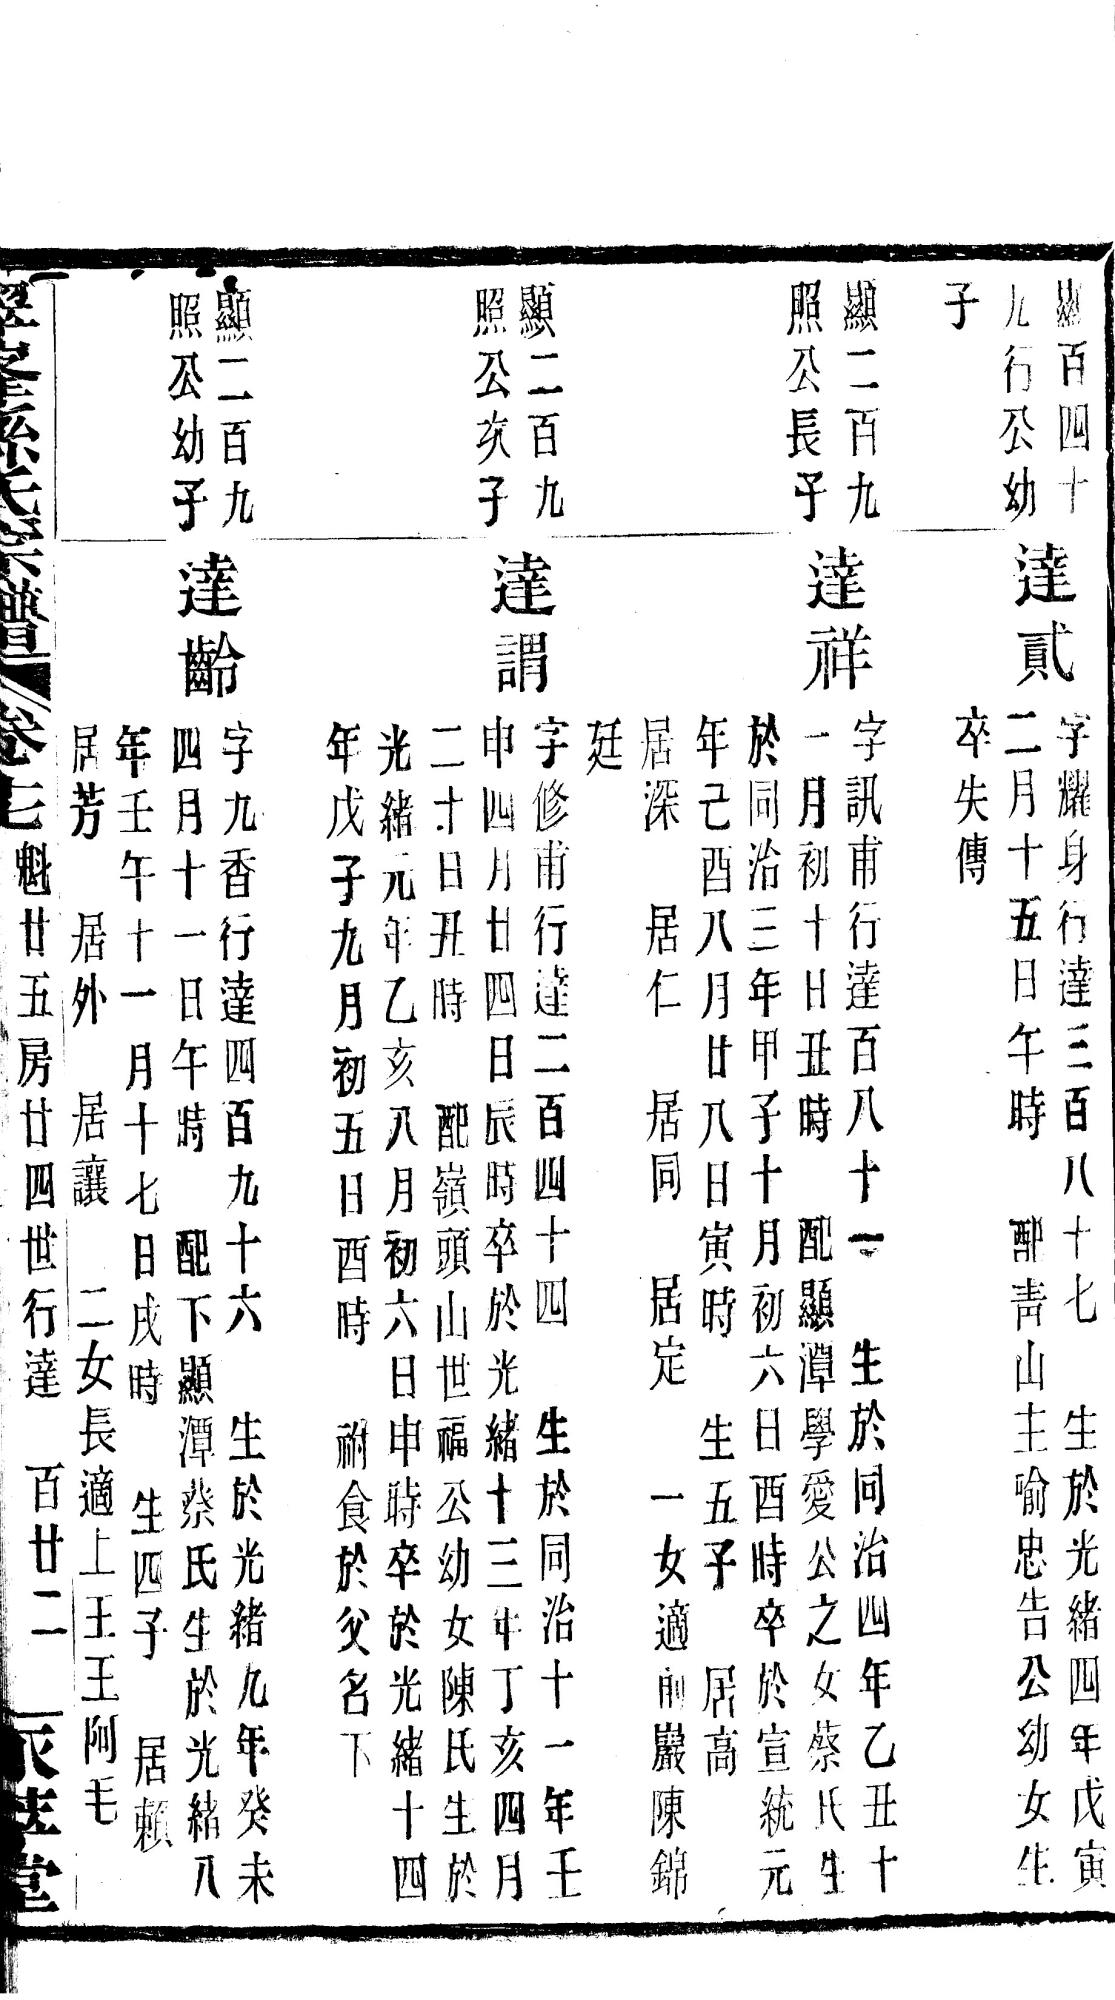 顯百四十
九行公幼
子
達貳
字耀身行達三百八十七 生於光緒四年戊寅
二月十五日午時 配青山主喻忠告公幼女生
卒失傳
顯二百九
照公長子
達祥
字訊甫行達百八十一 生於同治四年乙丑十
一月初十日丑時 配顯潭學愛公之女蔡氏生
於同治三年甲子十月初六日酉時卒於宣統元
年己酉八月廿八日寅時 生五子 居高
居深 居仁 居同 居定 一女適前巖陳錦
廷
顯二百九
照公次子
達謂
字修甫行達二百四十四 生於同治十一年壬
申四月廿四日辰時卒於光緒十三年丁亥四月
二十日丑時 配嶺頭山世福公幼女陳氏生於
光緒元年乙亥八月初六日申時卒於光緒十四
年戊子九月初五日酉時 祔食於父名下
顯二百九
照公幼子
達齡
字九香行達四百九十六 生於光緒九年癸未
四月十一日午時 配下顯潭蔡氏生於光緒八
年壬午十一月十七日戌時 生四子 居賴
居芳 居外 居讓 二女長適上王王阿毛
孫氏宗譜 卷七 魁廿五房廿四世行達 百廿二 堂